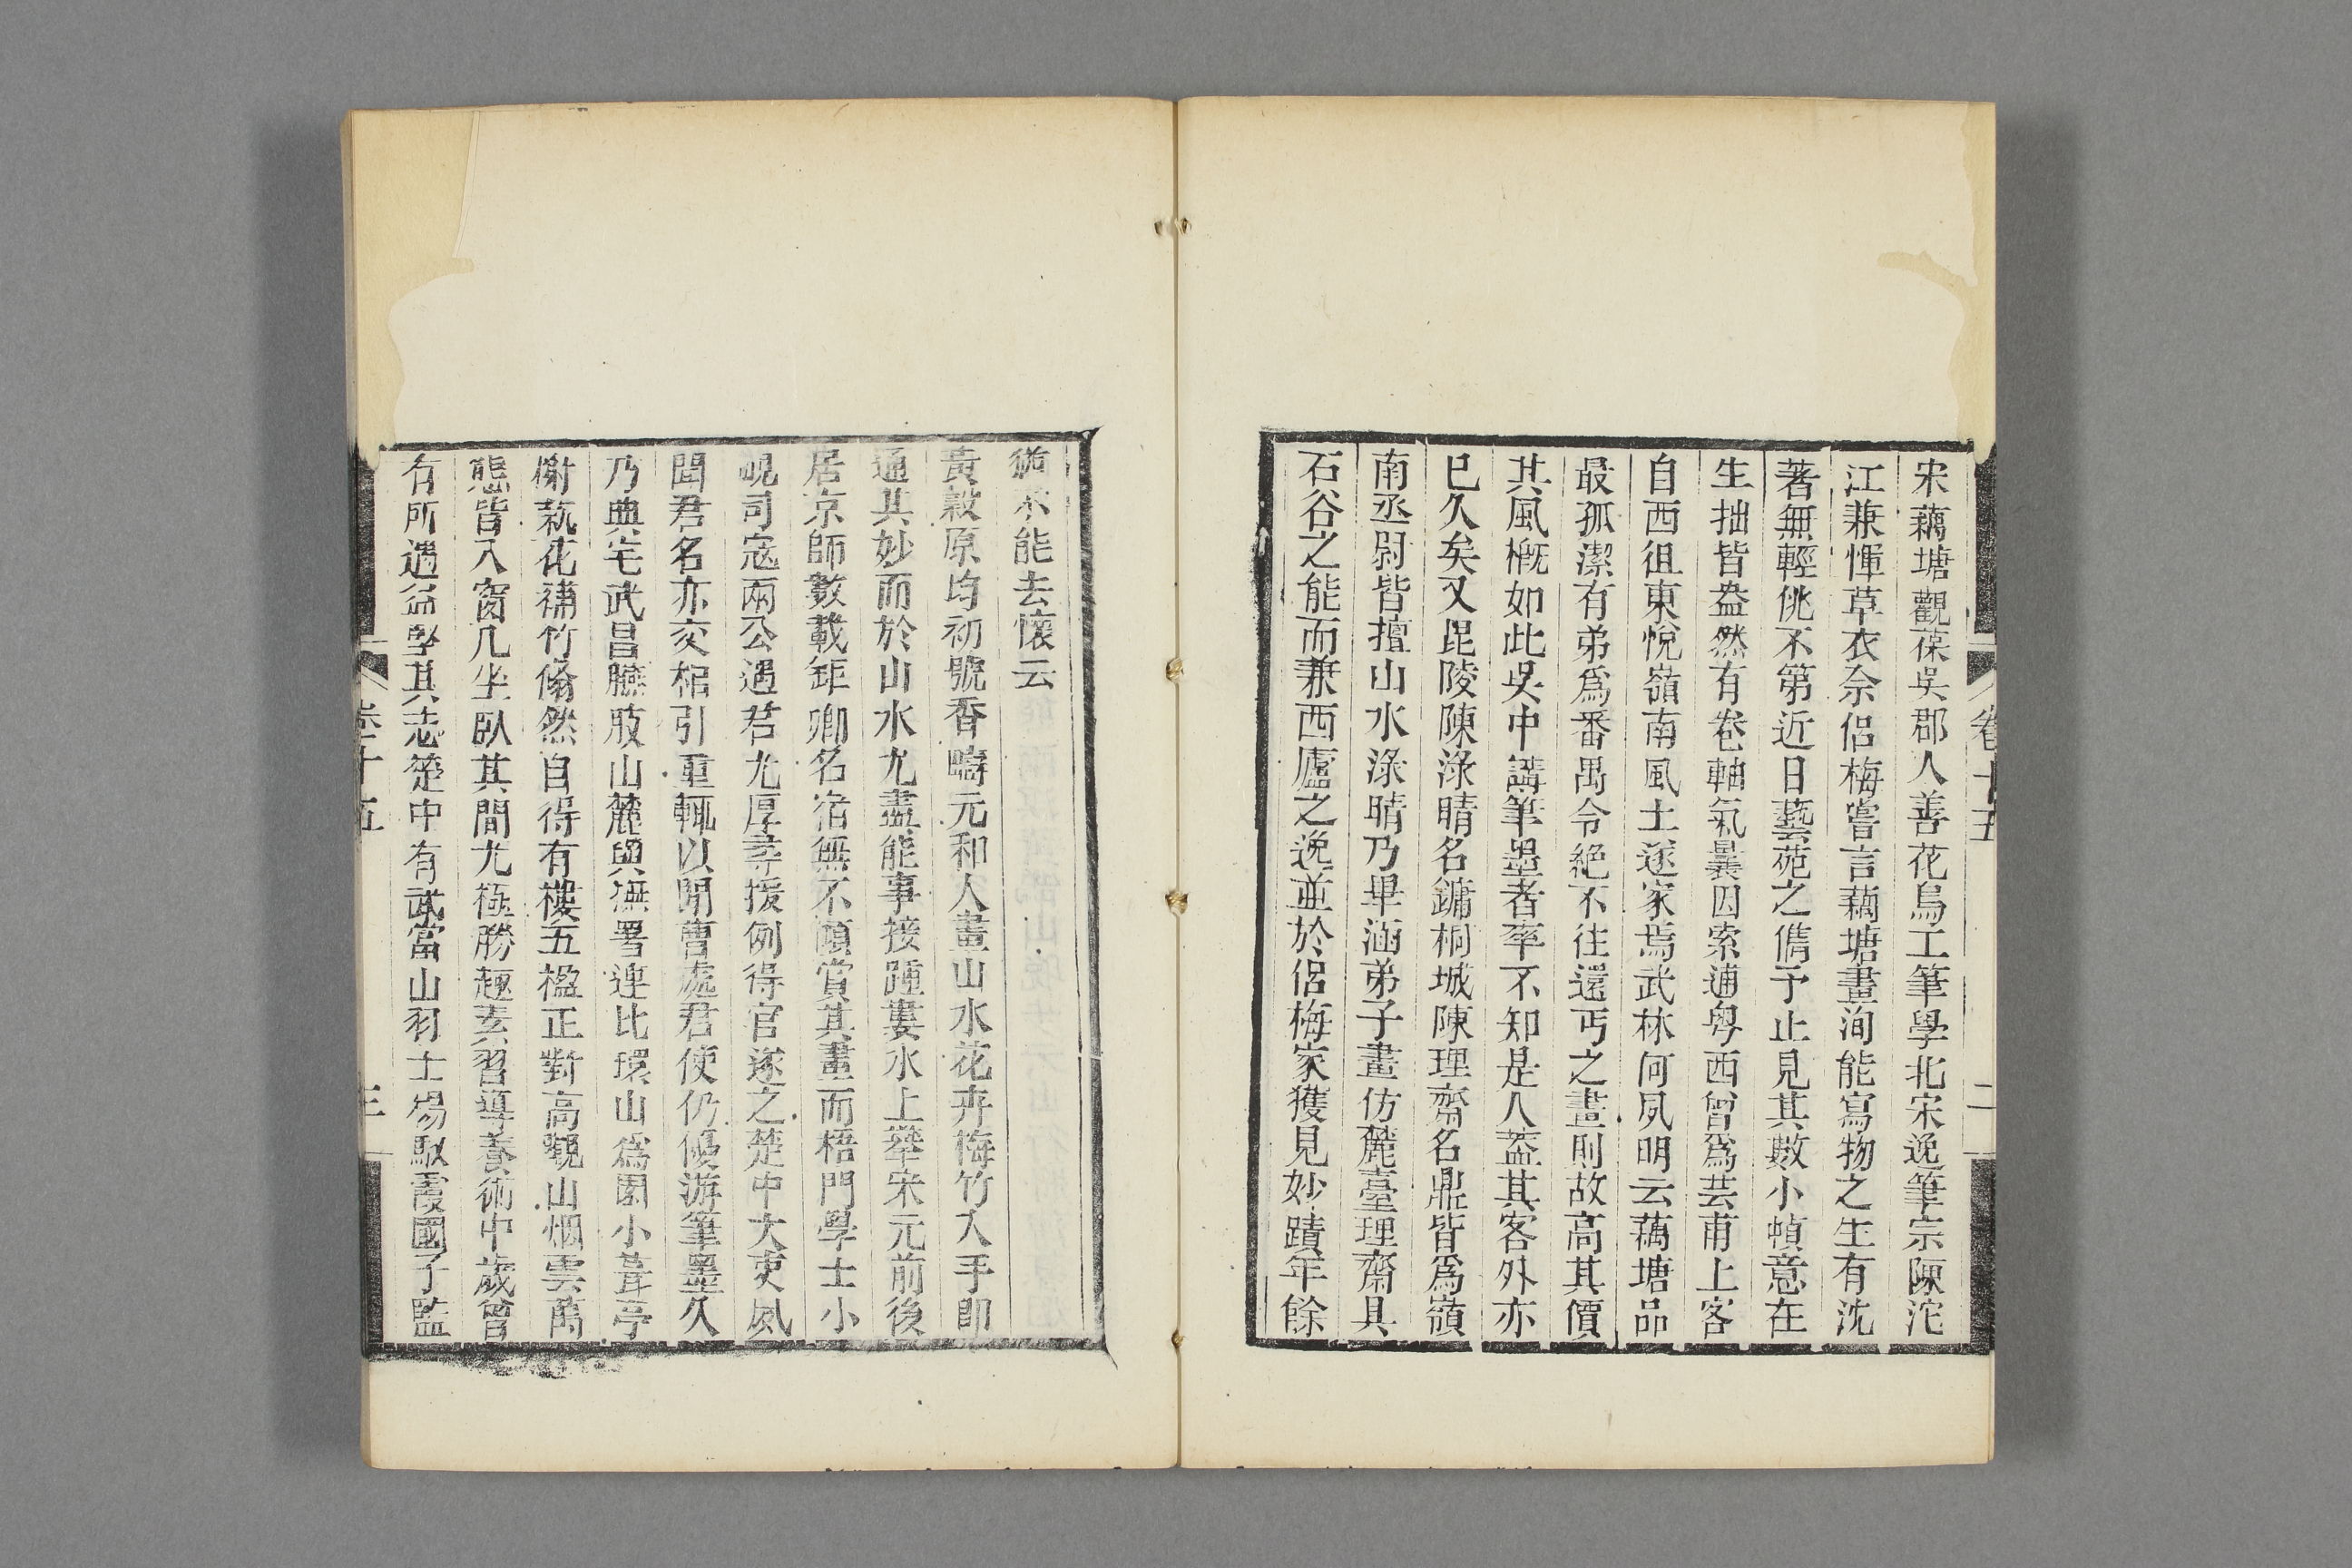 宋藕塘觀葆吳郡人善花鳥工筆學北宋逸筆宗陳沱
江兼惲草衣佘侶梅嘗言藕塘畫洵能寫物之生有沈
著無輕佻不第近日藝苑之儁予止見其數小幀意在
生拙皆盎然有卷軸氣曩因索逋粤西曾爲芸甫上客
自西徂東悅嶺南風土遂家焉武林何夙明云藕塘品
最孤潔有弟爲番禺令絕不往還丐之畫則故高其價
其風槪如此吳中講筆墨者率不知是人蓋其客外亦
已久矣又毘陵陳淥晴名鏞桐城陳理齋名鼎皆爲嶺
南丞尉皆擅山水淥晴乃畢涵弟子畫仿麓臺理齋具
石谷之能而兼西廬之逸並於侶梅家獲見妙蹟年餘
卷十五
二
猶不能去懷云
黃穀原均初號香疇元和人畫山水花卉梅竹入手卽
通其妙而於山水尤盡能事接踵婁水上攀宋元前後
居京師數載鉅卿名宿無不傾賞其畫而梧門學士小
峴司寇兩公遇君尤厚尋援例得官遂之楚中大吏夙
聞君名亦交相引重輒以閒曹處君使仍優游筆墨久
乃典宅武昌臙脂山麓與憮署連比環山爲園小葺亭
榭蓺花補竹翛然自得有樓五楹正對高觀山烟雲萬
態皆入窗几坐臥其間尤極勝趣素習導養術中歲曾
有所遇益堅其志楚中有武當山羽士楊馭霞國子監
卷十五
三